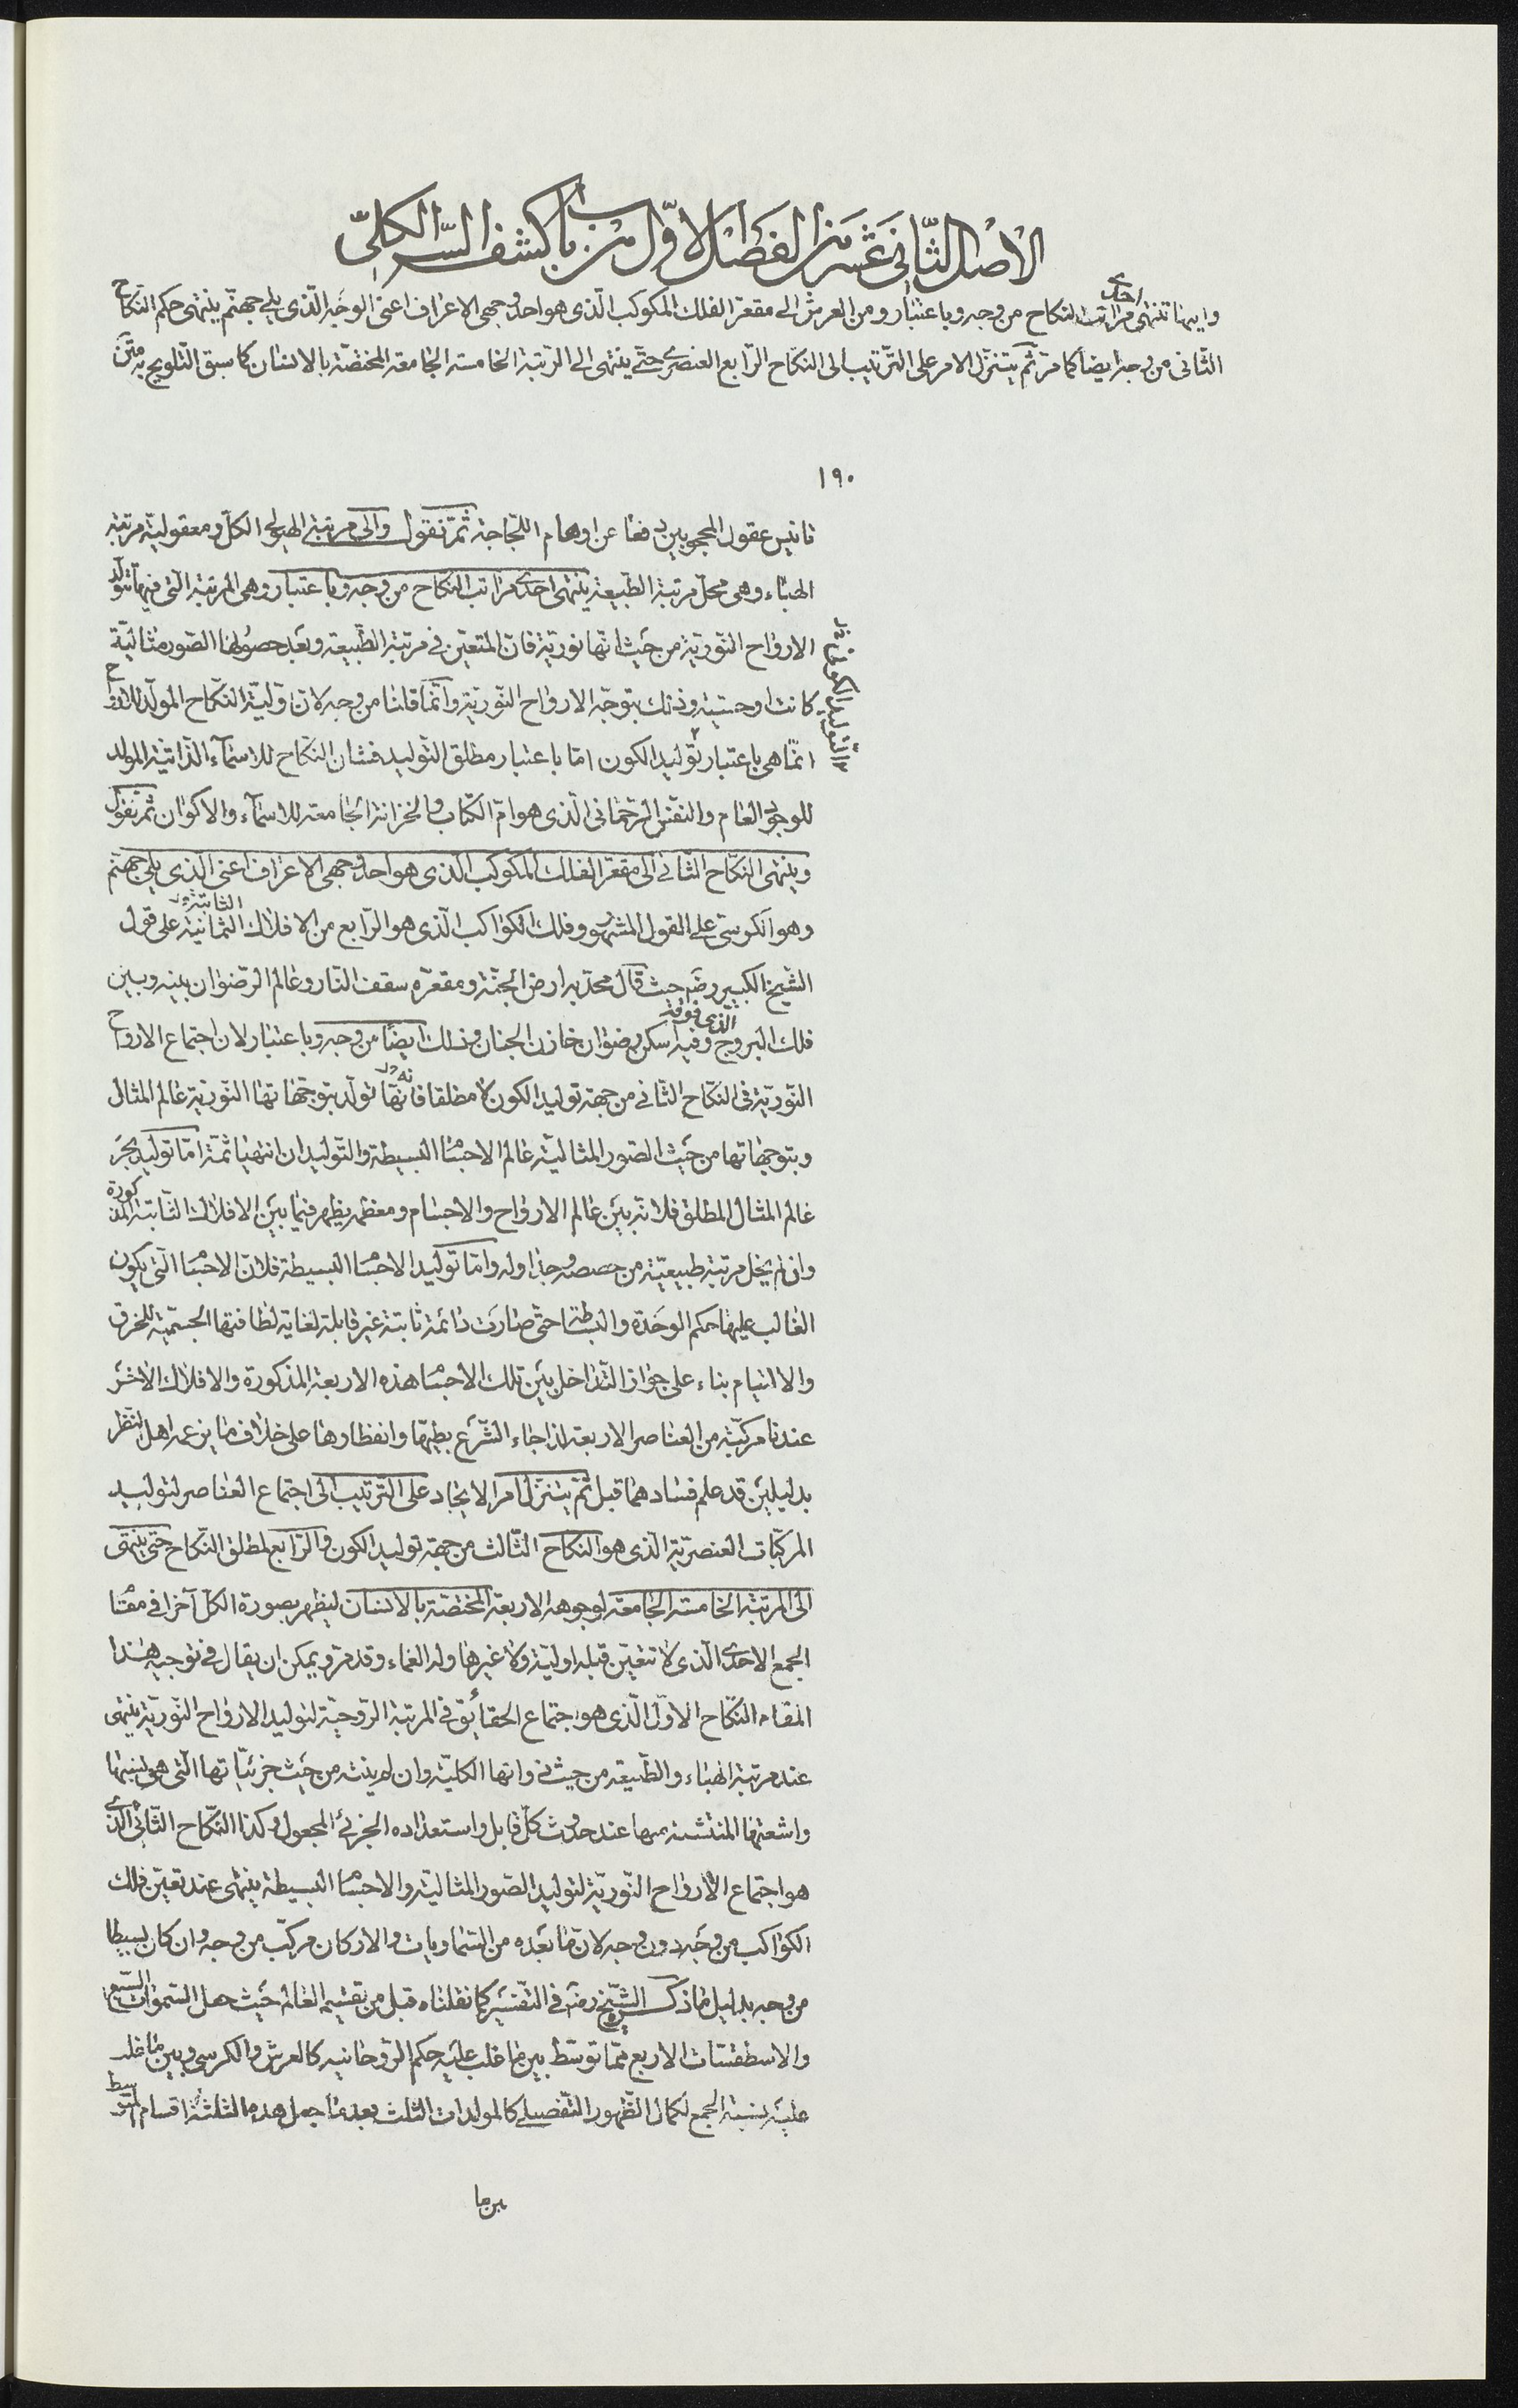 الاصل الثانى عشر من الفصل الاول من باب كشف السر الكلى
وايهما تنتهى احدى مراتب النكاح من وجه وباعتبار ومن العرش الى مقعر الفلك المكوكب الذى هو احد وجهى الاعراف اعنى الوجه الذى يلى جهنم ينتهى حكم النكاح
الثانى من وجه ايضا كما مر ثم يتنزل الامر على الترتيب الى النكاح الرابع العنصرى حتى ينتهى الى الرتبة الخامسة الجامعة المختصة بالانسان كما سبق التلويح به متن
١٩٠
تانيس عقول المحجوبين دفعا عن اوهام اللجاجة ثم نقول والى مرتبتى الهيولى الكل ومعقولية مرتبة
الهباء وهى محل مرتبة الطبيعة ينتهى احدى مراتب النكاح من وجه وباعتبار وهى المرتبة التى فيها تتولد
الارواح النورية من حيث انها نورية فان المتعين فى مرتبة الطبيعة وبعد حصولها الصور مثالية
كانت او حسية وذلك بتوجه الارواح النورية وانما قلنا من وجه لان اولية النكاح المولد للارواح
انما هى باعتبار توليد الكون اما باعتبار مطلق التوليد فشان النكاح للاسماء الذاتية المولد
للوجود العام والنفس الرحمانى الذى هو ام الكتاب والخزانة الجامعة للاسماء والاكوان ثم نقول
وينتهى النكاح الثانى الى مقعر الفلك المكوكب الذى هو احد وجهى الاعراف اعنى الذى يلى جهنم
وهو الكرسى على القول المشهور وفلك الكواكب الثابتة الذى هو الرابع من الافلاك الثمانية على قول
الشيخ الكبير رضه حيث قال محدبه ارض الجنة ومقعره سقف النار وعالم الرضوان بينه وبين
فلك البروج الذى فوقه وفيه اسكن رضوان خازن الجنان وذلك ايضا من وجه وباعتبار لان اجتماع الارواح
النورية فى النكاح الثانى من جهة توليد الكون لا مطلقا فانها تولد بتوجهاتها النورية عالم المثال
وبتوجهاتها من حيث الصور المثالية عالم الاجسام البسيطة والتوليدان انتهيا ثمة اما توليد
عالم المثال المطلق فلانه بين عالم الارواح والاجسام ومعظمه يظهر فيما بين الافلاك الثابتة المذكورة
وان لم يخل مرتبة طبيعية من حصصه وجداوله واما توليد الاجسام البسيطة فلان الاجسام التى يكون
الغالب عليها حكم الوحدة والبساطة حتى صارت دائمة ثابتة غير قابلة لغاية لطافتها الجسمية للخرق
والالتيام بناء على جواز التداخل بين تلك الاجسام هذه الاربعة المذكورة والافلاك الاخر
عندنا مركبة من العناصر الاربعة لذا جاء الشرع بطيها وانفطارها على خلاف ما يزعمه اهل النظر
بدليلين قد علم فسادهما قبل ثم يتنزل امر الايجاد على الترتيب الى اجتماع العناصر لتوليد
المركبات العنصرية الذى هو النكاح الثالث من جهة توليد الكون والرابع لمطلق النكاح حتى ينتهى
الى المرتبة الخامسة الجامعة لوجوهه الاربعة المختصة بالانسان ليظهر بصورة الكل آخرا فى مقام
الجمع الاحدى الذى لا تتعين قبله اولية ولا غيرها وله العماء وقد مر ويمكن ان يقال فى توجيه هذا
المقام النكاح الاول الذى هو اجتماع الحقائق فى المرتبة الروحية لتوليد الارواح النورية ينتهى
عند مرتبة الهباء والطبيعة من حيث ذواتها الكلية وان لم ينته من حيث جزئياتها التى هى نسبها
واشعتها المنتشية منها عند حدوث كل قابل واستعداده الجزئى المجعول وكذا النكاح الثانى الذى
هو اجتماع الارواح النورية لتوليد الصور المثالية والاجسام البسيطة ينتهى عند تعين فلك
الكواكب من وجه دون وجه لان ما بعده من السماويات والاركان مركب من وجه وان كان بسيطا
من وجه بدليل ما ذكره الشيخ رضه فى التفسير كما نقلناه قبل من تقسيم العالم حيث جعل السموات السبع
والاسطقسات الاربع مما توسط بين ما غلب عليه حكم الروحانية كالعرش والكرسى وبين ما غلب
عليه نسبة الجمع لكمال الظهور التفصيلى كالمولدات الثلث بعدما جعل هذه الثلثة اقسام المتوسط